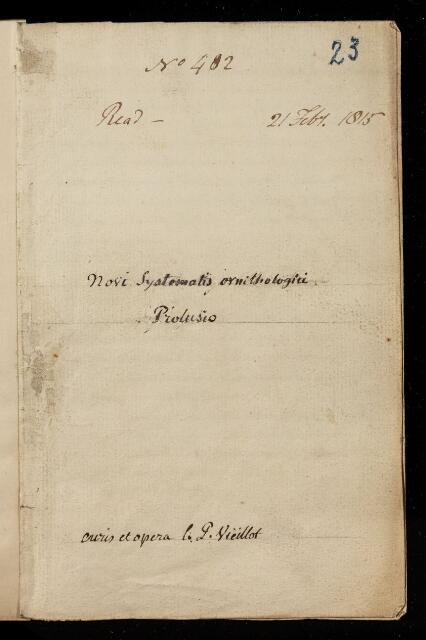 23
No 482
Read – 21 Febr. 1815
Novi Systematis ornithologici
Prolusio
curis et opera L. P. Vieillot